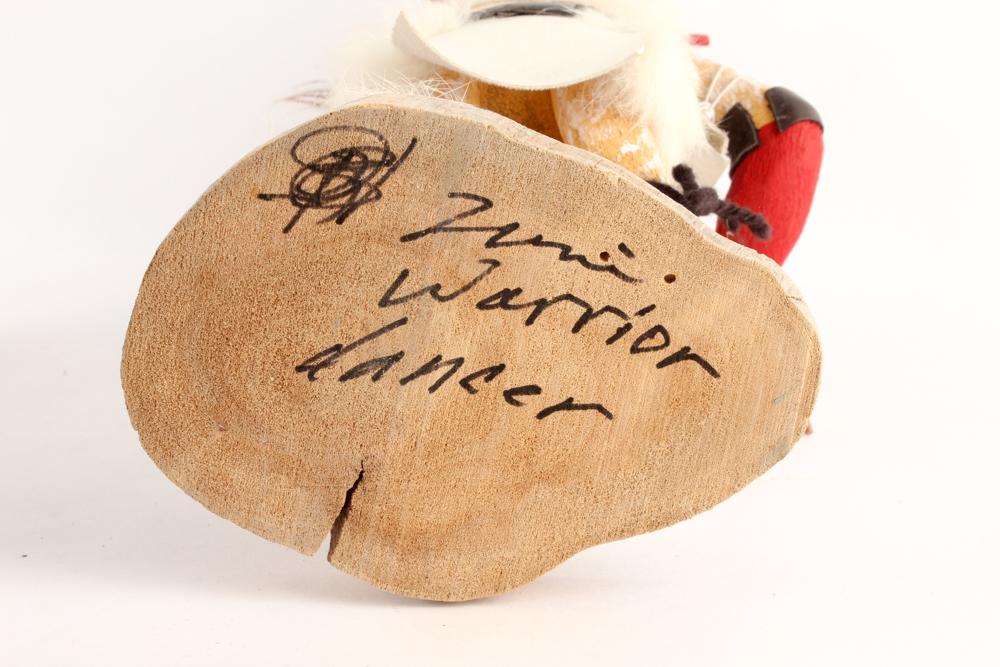 Zuni
Warrior
dancer